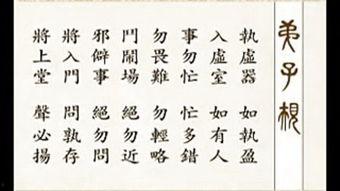 弟子規
執虛器 如執盈
入虛室 如有人
事勿忙 忙多錯
勿畏難 勿輕略
鬥鬧場 絕勿近
邪僻事 絕勿問
將入門 問孰存
將上堂 聲必揚